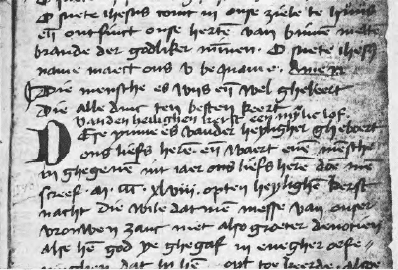 O suete ihesus comt in onse ziele te huus
en ontfinct onse herten van binnen mitten
brande der godliker minnen. O suete ihesus
name maect ons v bequame. Amen
Die mensche es wijs en wel gheleert
Die alle dinc ten besten keert
van den heilighen kerst een mijlic lof.
Dese pinne es vander heyligher gheboert
ons liefs heren en waert enen mensche
in ghegeuen int iaer ons liefs heren doe men
screef. M. CCC. xlviii. opten heylighen kerst
nacht die wile dat men messe van onser
vrouwen zanc met also groeter deuotien
alse hem god ye ghegaf in enegher oefe
dat hi hem